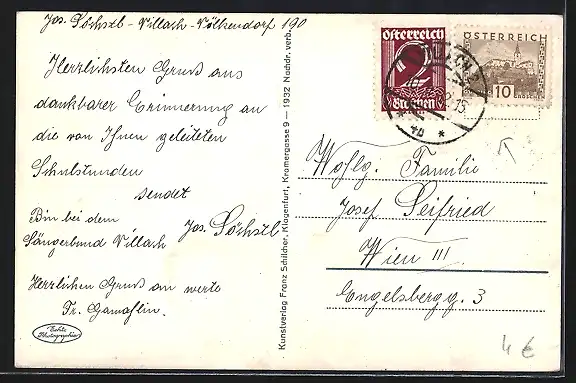 Jos. Söchstl - Villach - Völkendorf 190
Herzlichsten Gruss aus
dankbarer Erinnerung an
die von Ihnen geleiteten
Schulstunden
sendet
Jos. Söchstl
Bin bei dem
Sängerbund Villach
Herzlichen Gruss an werte
Fr. Gemahlin.
Echte
Photographie
Kunstverlag Franz Schilcher, Klagenfurt, Kramergasse 9 — 1932 Nachdr. verb.
Österreich
2
Groschen
ÖSTERREICH
10
GROSCHEN
Wohlg. Familie
Josef Seifried
Wien III.
Engelsbergg. 3
4 €